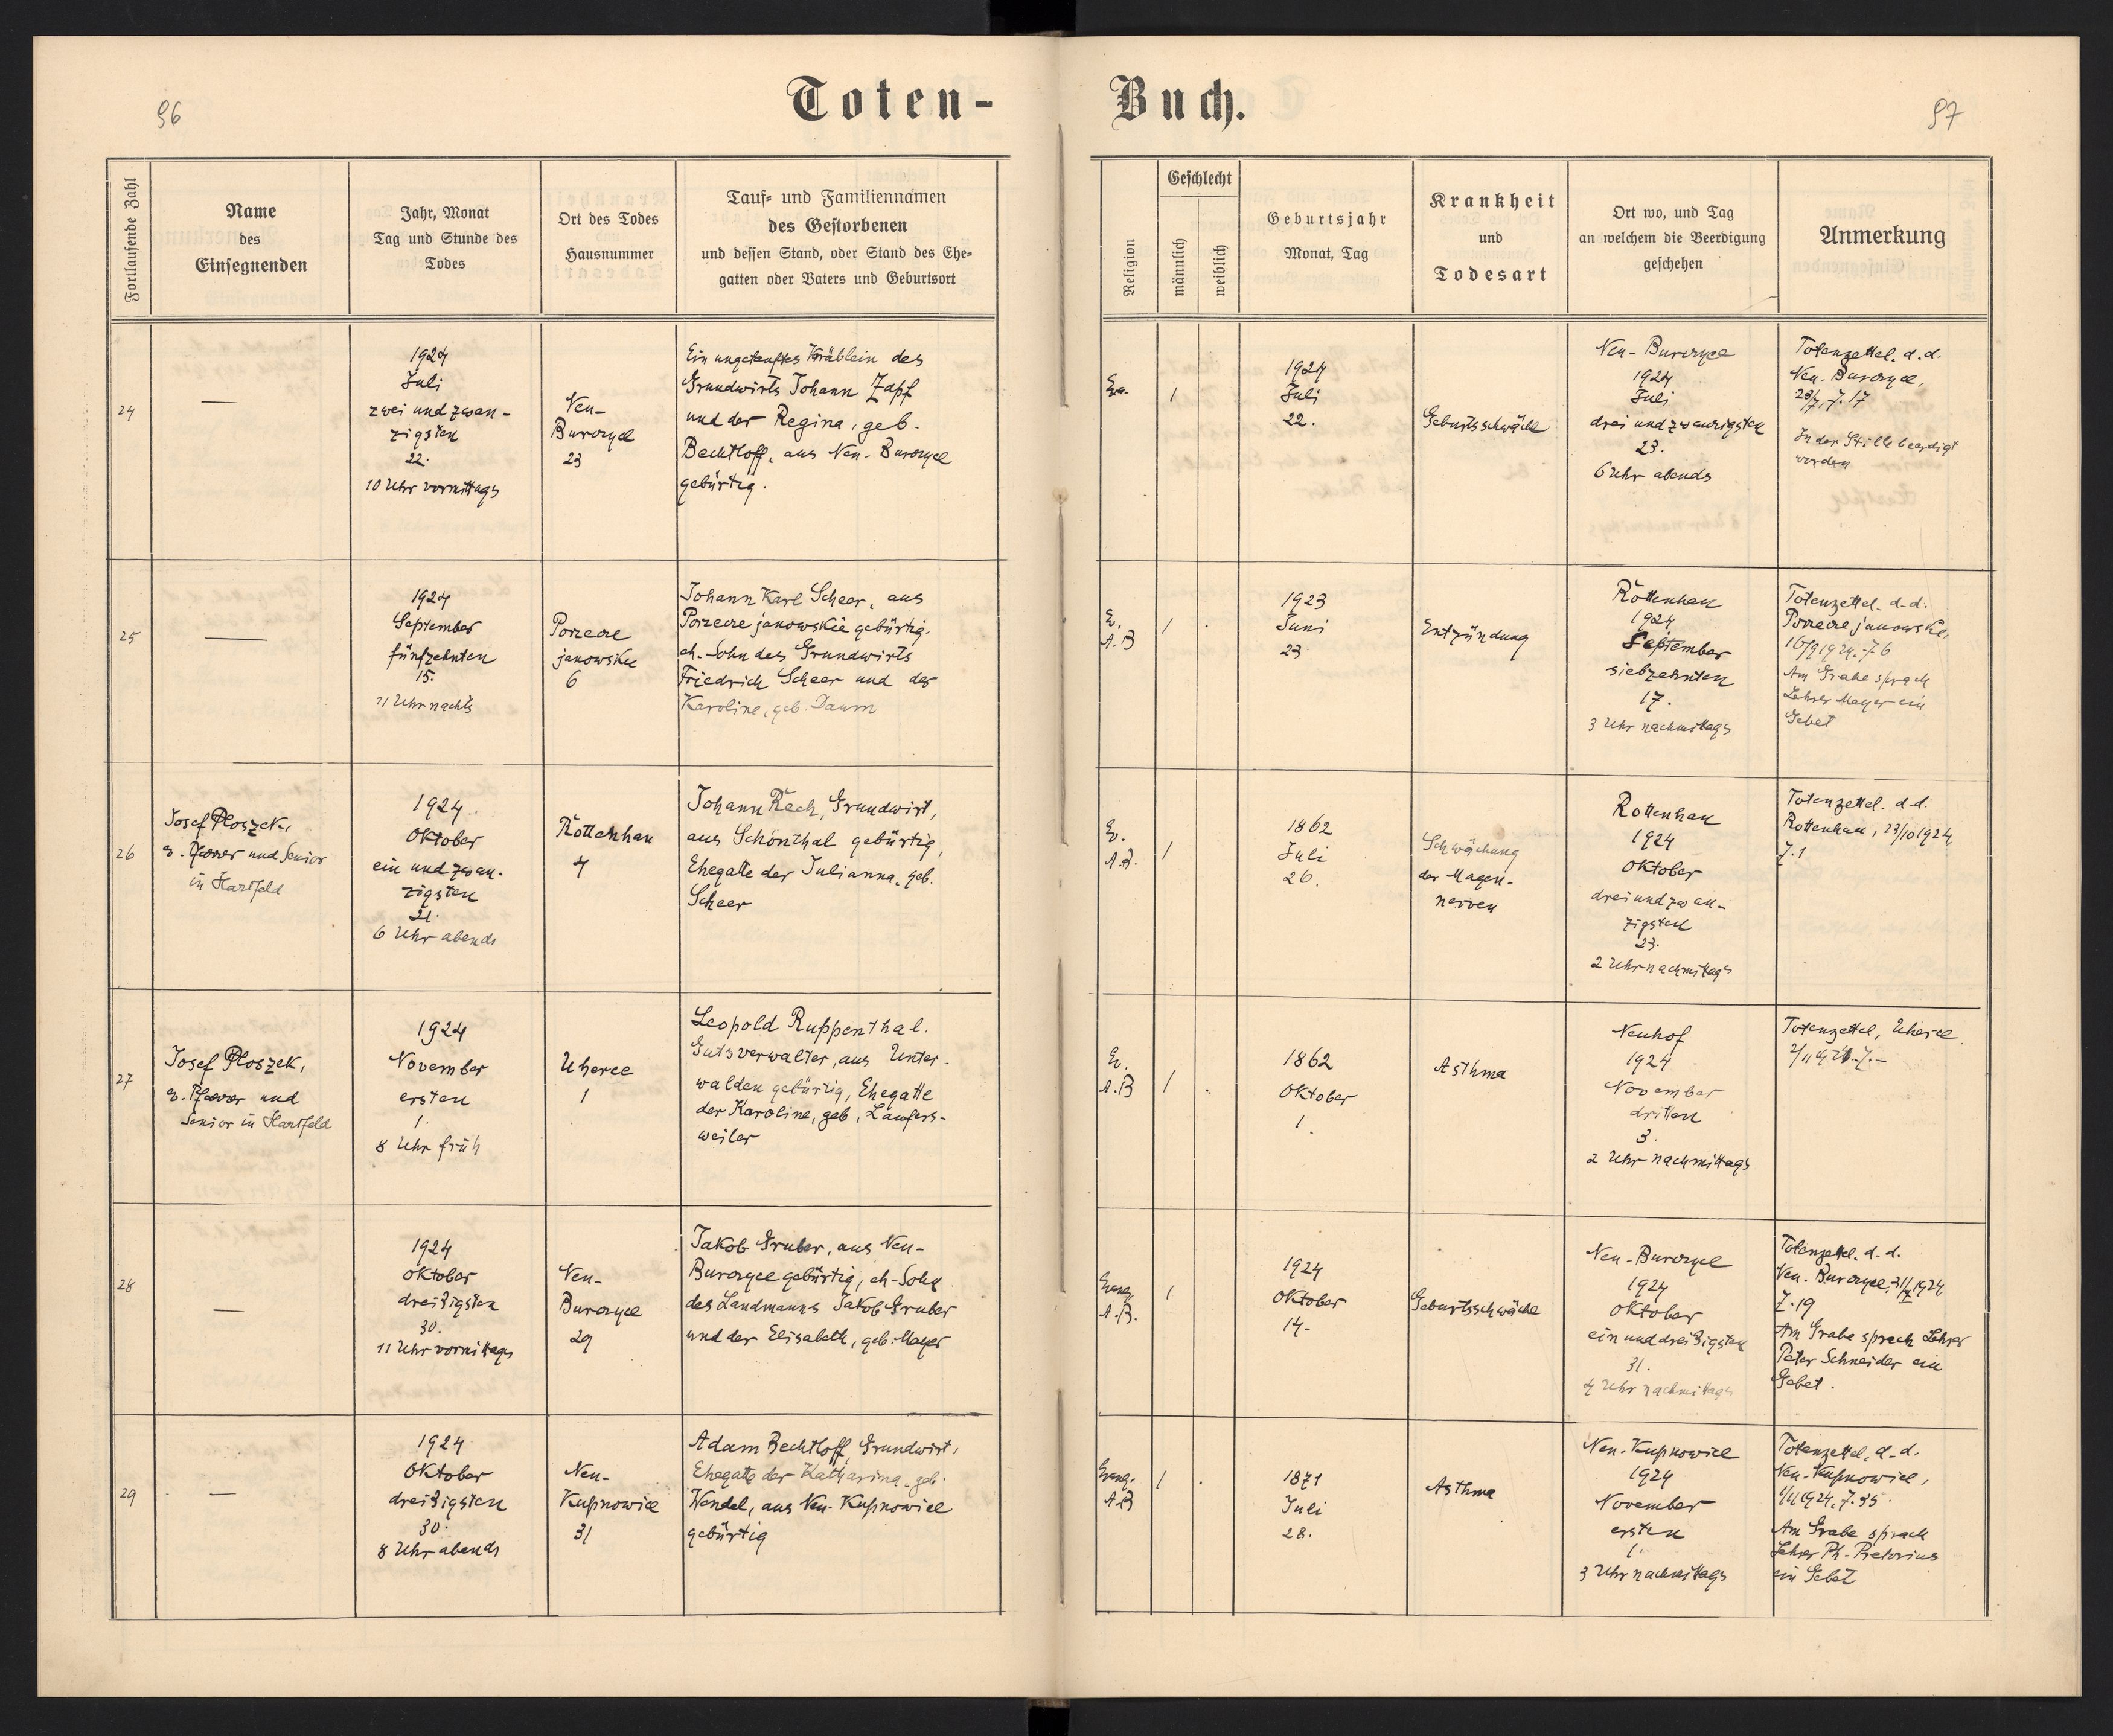 96
Toten-
Buch.
97
Fortlaufende Zahl
Name
des
Einsegnenden
Jahr, Monat
Tag und Stunde des
Todes
Ort des Todes
Hausnummer
Tauf- und Familiennamen
des Gestorbenen
und dessen Stand, oder Stand des Ehe-
gatten oder Vaters und Geburtsort
Religion
Geschlecht
männlich
weiblich
Geburtsjahr
Monat, Tag
Krankheit
und
Todesart
Ort wo, und Tag
an welchem die Beerdigung
geschehen
Anmerkung
24
—
1924
Juli
zwei und zwan-
zigsten
22.
10 Uhr vormittags
Neu-
Burczyce
23
Ein ungetauftes Knäblein des
Grundwirts Johann Zapf
und der Regina, geb.
Bechtloff, aus Neu-Burczyce
gebürtig.
Ev.
1
1924
Juli
22.
Geburtsschwäche
Neu-Burczyce
1924
Juli
drei und zwanzigsten
23.
6 Uhr abends
Totenzettel. d.d.
Neu-Burczyce,
23/7, Z. 17
In der Stille beerdigt
worden
25
—
1924
September
fünfzehnten
15.
11 Uhr nachts
Porzecze
janowskie
6
Johann Karl Scheer, aus
Porzecze janowskie gebürtig,
eh. Sohn des Grundwirts
Friedrich Scheer und der
Karoline, geb. Daum
Ev.
A.B
1
1923
Juni
23.
Entzündung
Rottenhan
1924
September
siebzehnten
17.
3 Uhr nachmittags
Totenzettel. d.d.
Porzecze janowskie,
16/9 1924. Z. 6
Am Grabe sprach
Lehrer Mayer ein
Gebet
26
Josef Ploszek,
ev. Pfarrer und Senior
in Hartfeld
1924.
Oktober
ein und zwan-
zigsten
21.
6 Uhr abends
Rottenhan
4
Johann Rech, Grundwirt,
aus Schönthal gebürtig,
Ehegatte der Julianna, geb.
Scheer
Ev.
A.B.
1
1862
Juli
26.
Schwächung
der Magen-
nerven
Rottenhan
1924
Oktober
drei und zwan-
zigsten
23.
2 Uhr nachmittags
Totenzettel. d.d.
Rottenhan, 23/10 1924,
Z. 1
27
Josef Ploszek,
ev. Pfarrer und
Senior in Hartfeld
1924
November
ersten
1.
8 Uhr früh
Uherce
1
Leopold Ruppenthal.
Gutsverwalter, aus Unter-
walden gebürtig, Ehegatte
der Karoline, geb, Laufers-
weiler
Ev.
A.B
1
1862
Oktober
1.
Asthma
Neuhof
1924
November
dritten
3.
2 Uhr nachmittags
Totenzettel, Uherce
2/11 1924. Z. —
28
—
1924
Oktober
dreißigsten
30.
11 Uhr vormittags
Neu-
Burczyce
29
Jakob Gruber, aus Neu-
Burczyce gebürtig, eh. Sohn
des Landmanns Jakob Gruber
und der Elisabeth, geb. Mayer
Evang.
A.B.
1
1924
Oktober
14.
Geburtsschwäche
Neu-Burczyce
1924
Oktober
ein und dreißigsten
31.
4 Uhr nachmittags
Totenzettel. d.d.
Neu-Burczyce, 31/X 1924
Z. 19
Am Grabe sprach Lehrer
Peter Schneider ein
Gebet.
29
—
1924
Oktober
dreißigsten
30.
8 Uhr abends
Neu-
Kupnowice
31
Adam Bechtloff, Grundwirt,
Ehegatte der Katharina, geb.
Wendel, aus Neu-Kupnowice
gebürtig
Evang.
A.B
1
1871
Juli
28.
Asthma
Neu-Kupnowice
1924
November
ersten
1.
3 Uhr nachmittags
Totenzettel. d.d.
Neu-Kupnowice,
1/11 1924, Z. 35.
Am Grabe sprach
Lehrer Ph. Pretorius
ein Gebet